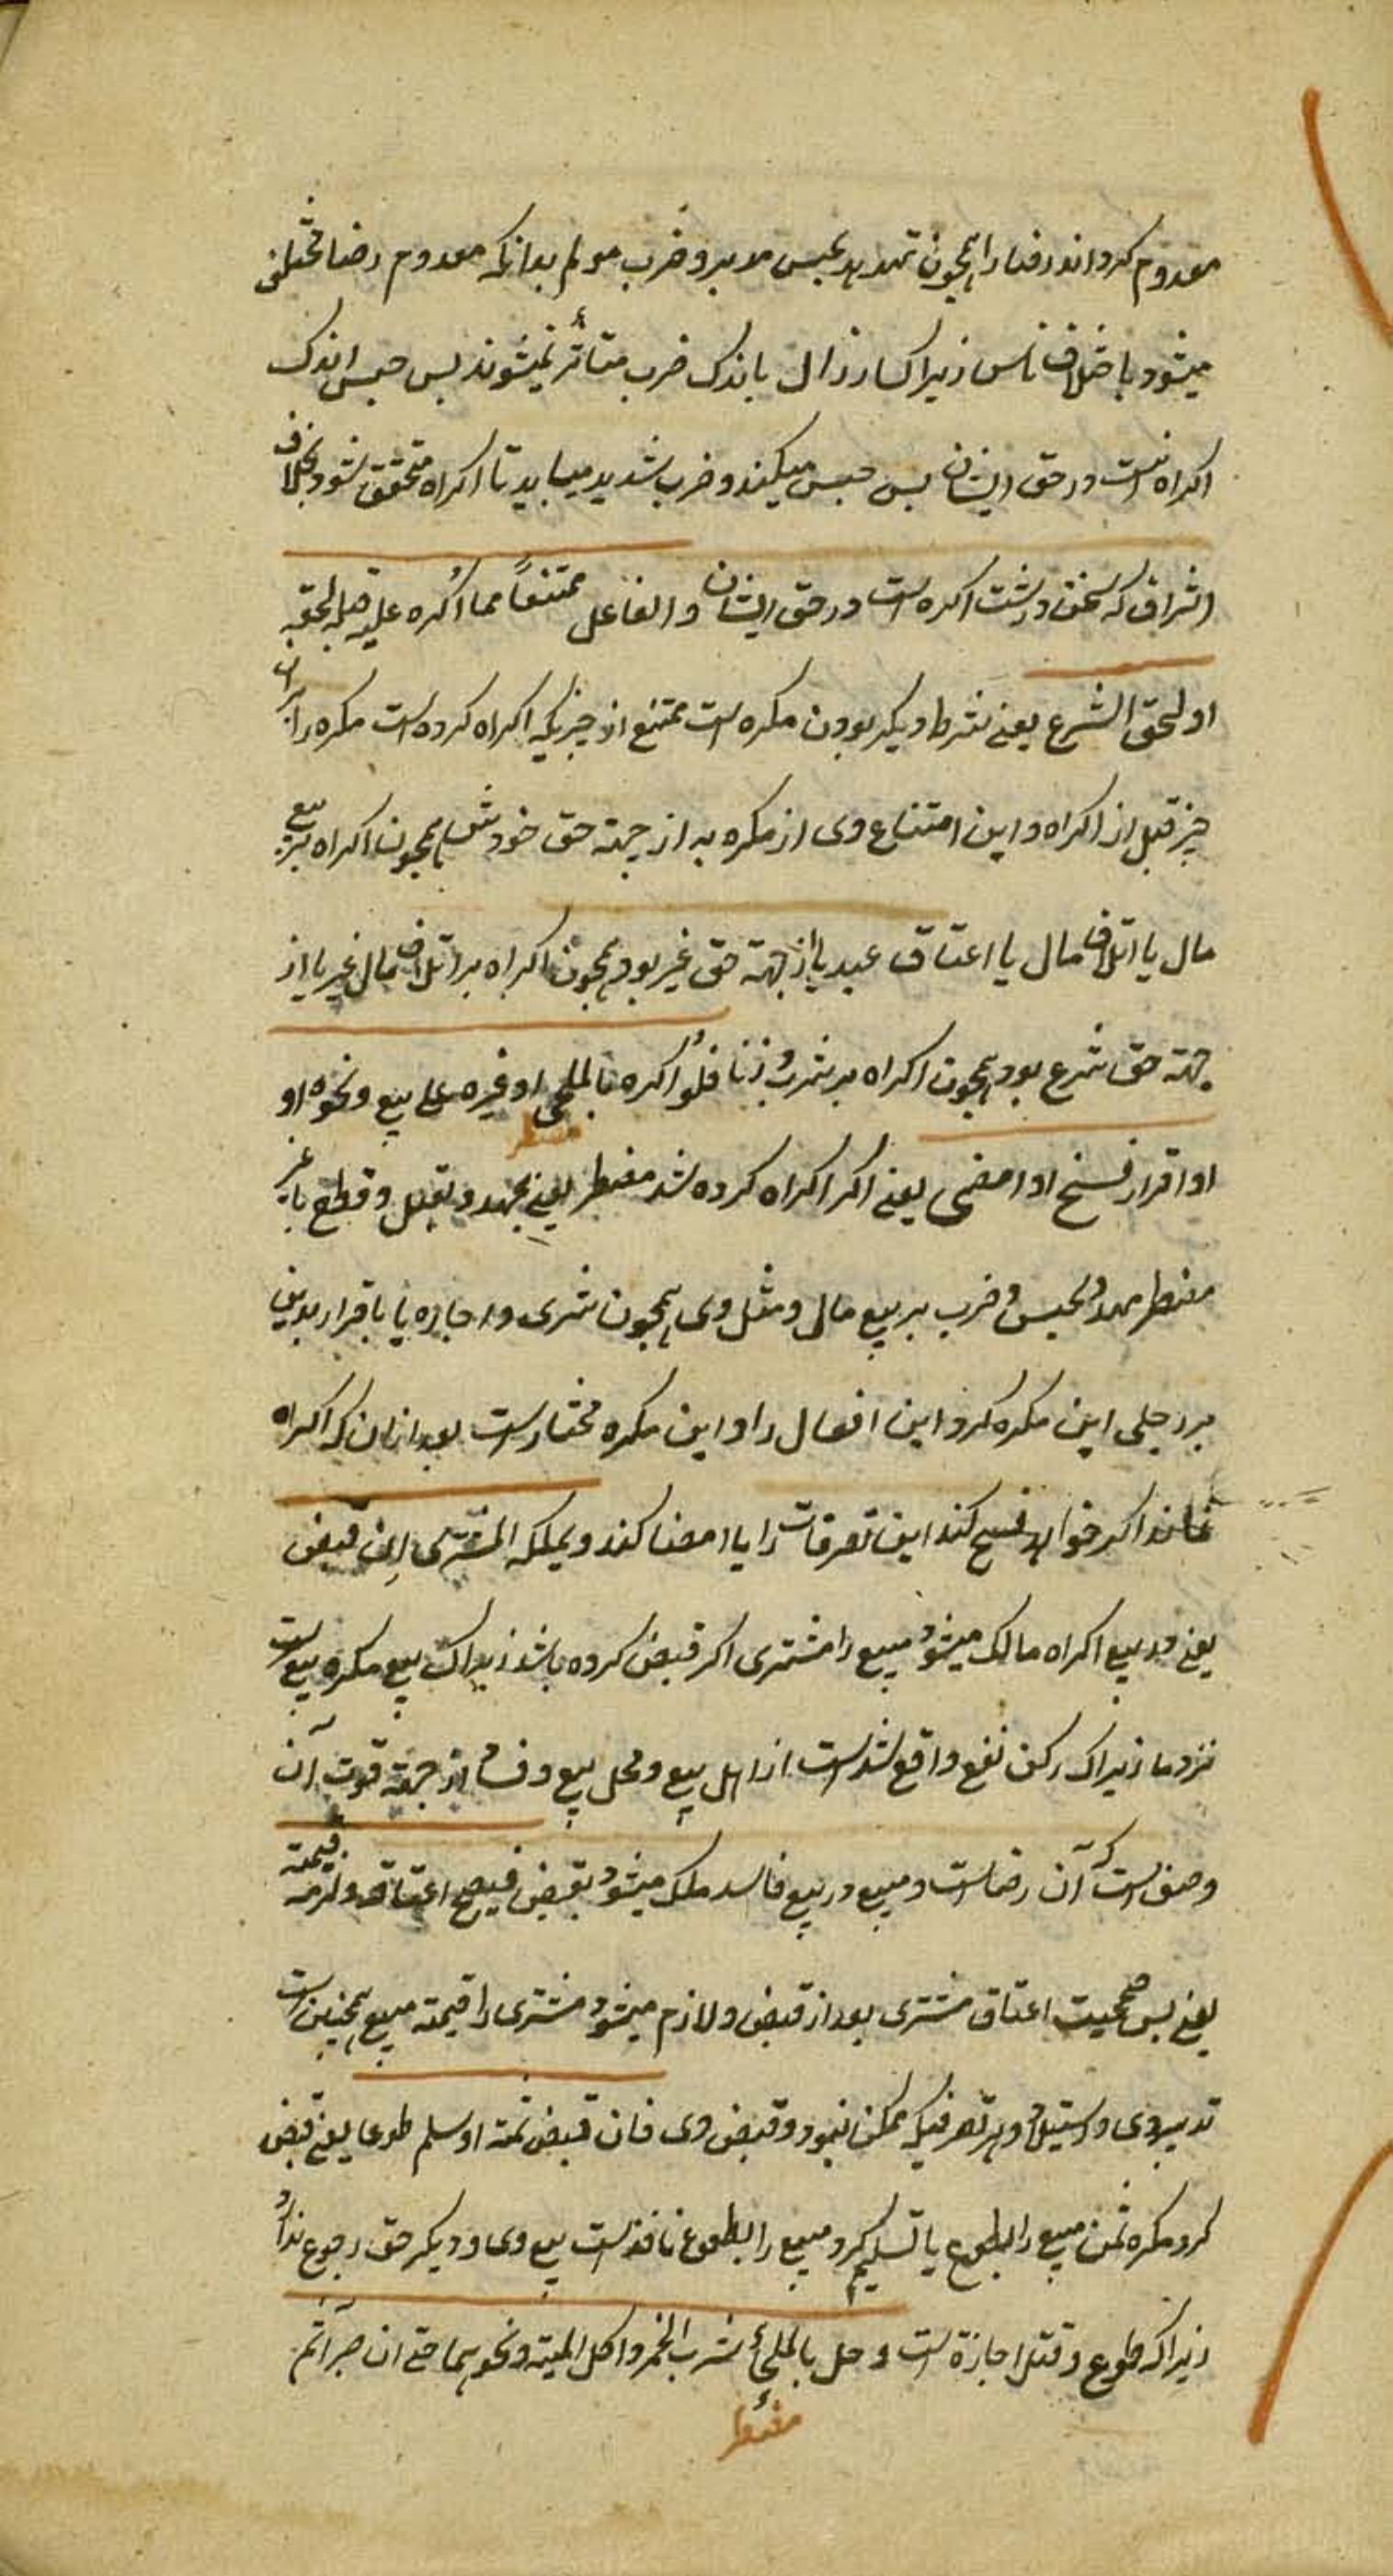 معدوم کرداند رضا را همچون تهدید بحبس مدید و ضرب مولم بدانکه معدوم رضا مختلف
میشود باختلاف ناس زیرا کسار ذال باندک ضرب متأثر نمیشوند بس حبس اندک
اکراه نیست در حق ایشان بس حبس میکند و ضرب شدید میباید تا اکراه متحقق شود بخلاف
اشراف که سخن درشت اکره است در حق ایشان والفاعل ممتنعاً مما اُکره علیه قبله لحقه
او لحق الشرع یعنے شرط دیکر بودن مکره است ممتنع از چیزیکه اکراه کرده است مکره را بران
چیز قبل از اکراه و این امتناع وی از مکره به از جهة حق خودش همچون اکراه بر بیع
مال یا اتلاف مال یا اعتاق عبد یا از جهة حق غیر بود همچون اکراه بر اتلاف مال غیر یا از
جهة حق شرع بود همچون اکراه بر شرب و زنا فلو اُکره بالملجی او غیره علے بیع ونحوه او
او اقرار فسخ او امضی یعنے اکر اکراه کرده شد مضطر یعنے بتهدید بقتل و قطع یا غیر
مضطر
مضطر بحبس و ضرب بر بیع مالی و مثل وی همچون شری و اجاره یا باقرار بدینی
بر رجلی این مکره کرد این افعال را و این مکره مختارست بعد از ان که اکراه
نماند اکر خواهد فسخ کند این تصرفات را یا امضا کند ویملکه المشتری اِن قبض
یعنے در بیع اکراه مالک میشود مبیع را مشتری اکر قبض کرده باشد زیراک بیع مکره بیع است
نزد ما زیراک رکن نفع واقع شد است از اهل بیع و محل بیع و فساد از جهة فوت آن
وصف است که آن رضاست و مبیع در بیع فاسد ملک میشود بقبض فیصح اعتاقه ولزمه قیمته
یعنے بس صحیحست اعتاق مشتری بعد از قبض و لازم میشود مشتری را قیمة مبیع همچنین است
تدبیر وی و استیلاد و هر تصرفیکه ممکن نبود و قبض وی فان قبض ثمنه او سلم طوعا یعنے قبض
کرد مکره ثمن مبیع را بطوع یا تسلیم کرد مبیع را بطوع نافذ است بیع وی و دیکر حق رجوع ندارد
زیراکه طوع اجازة است و حل بالملجئ شرب الخمر واکل المیتة ونحوهما حتے ان صبر اثم
مضطر